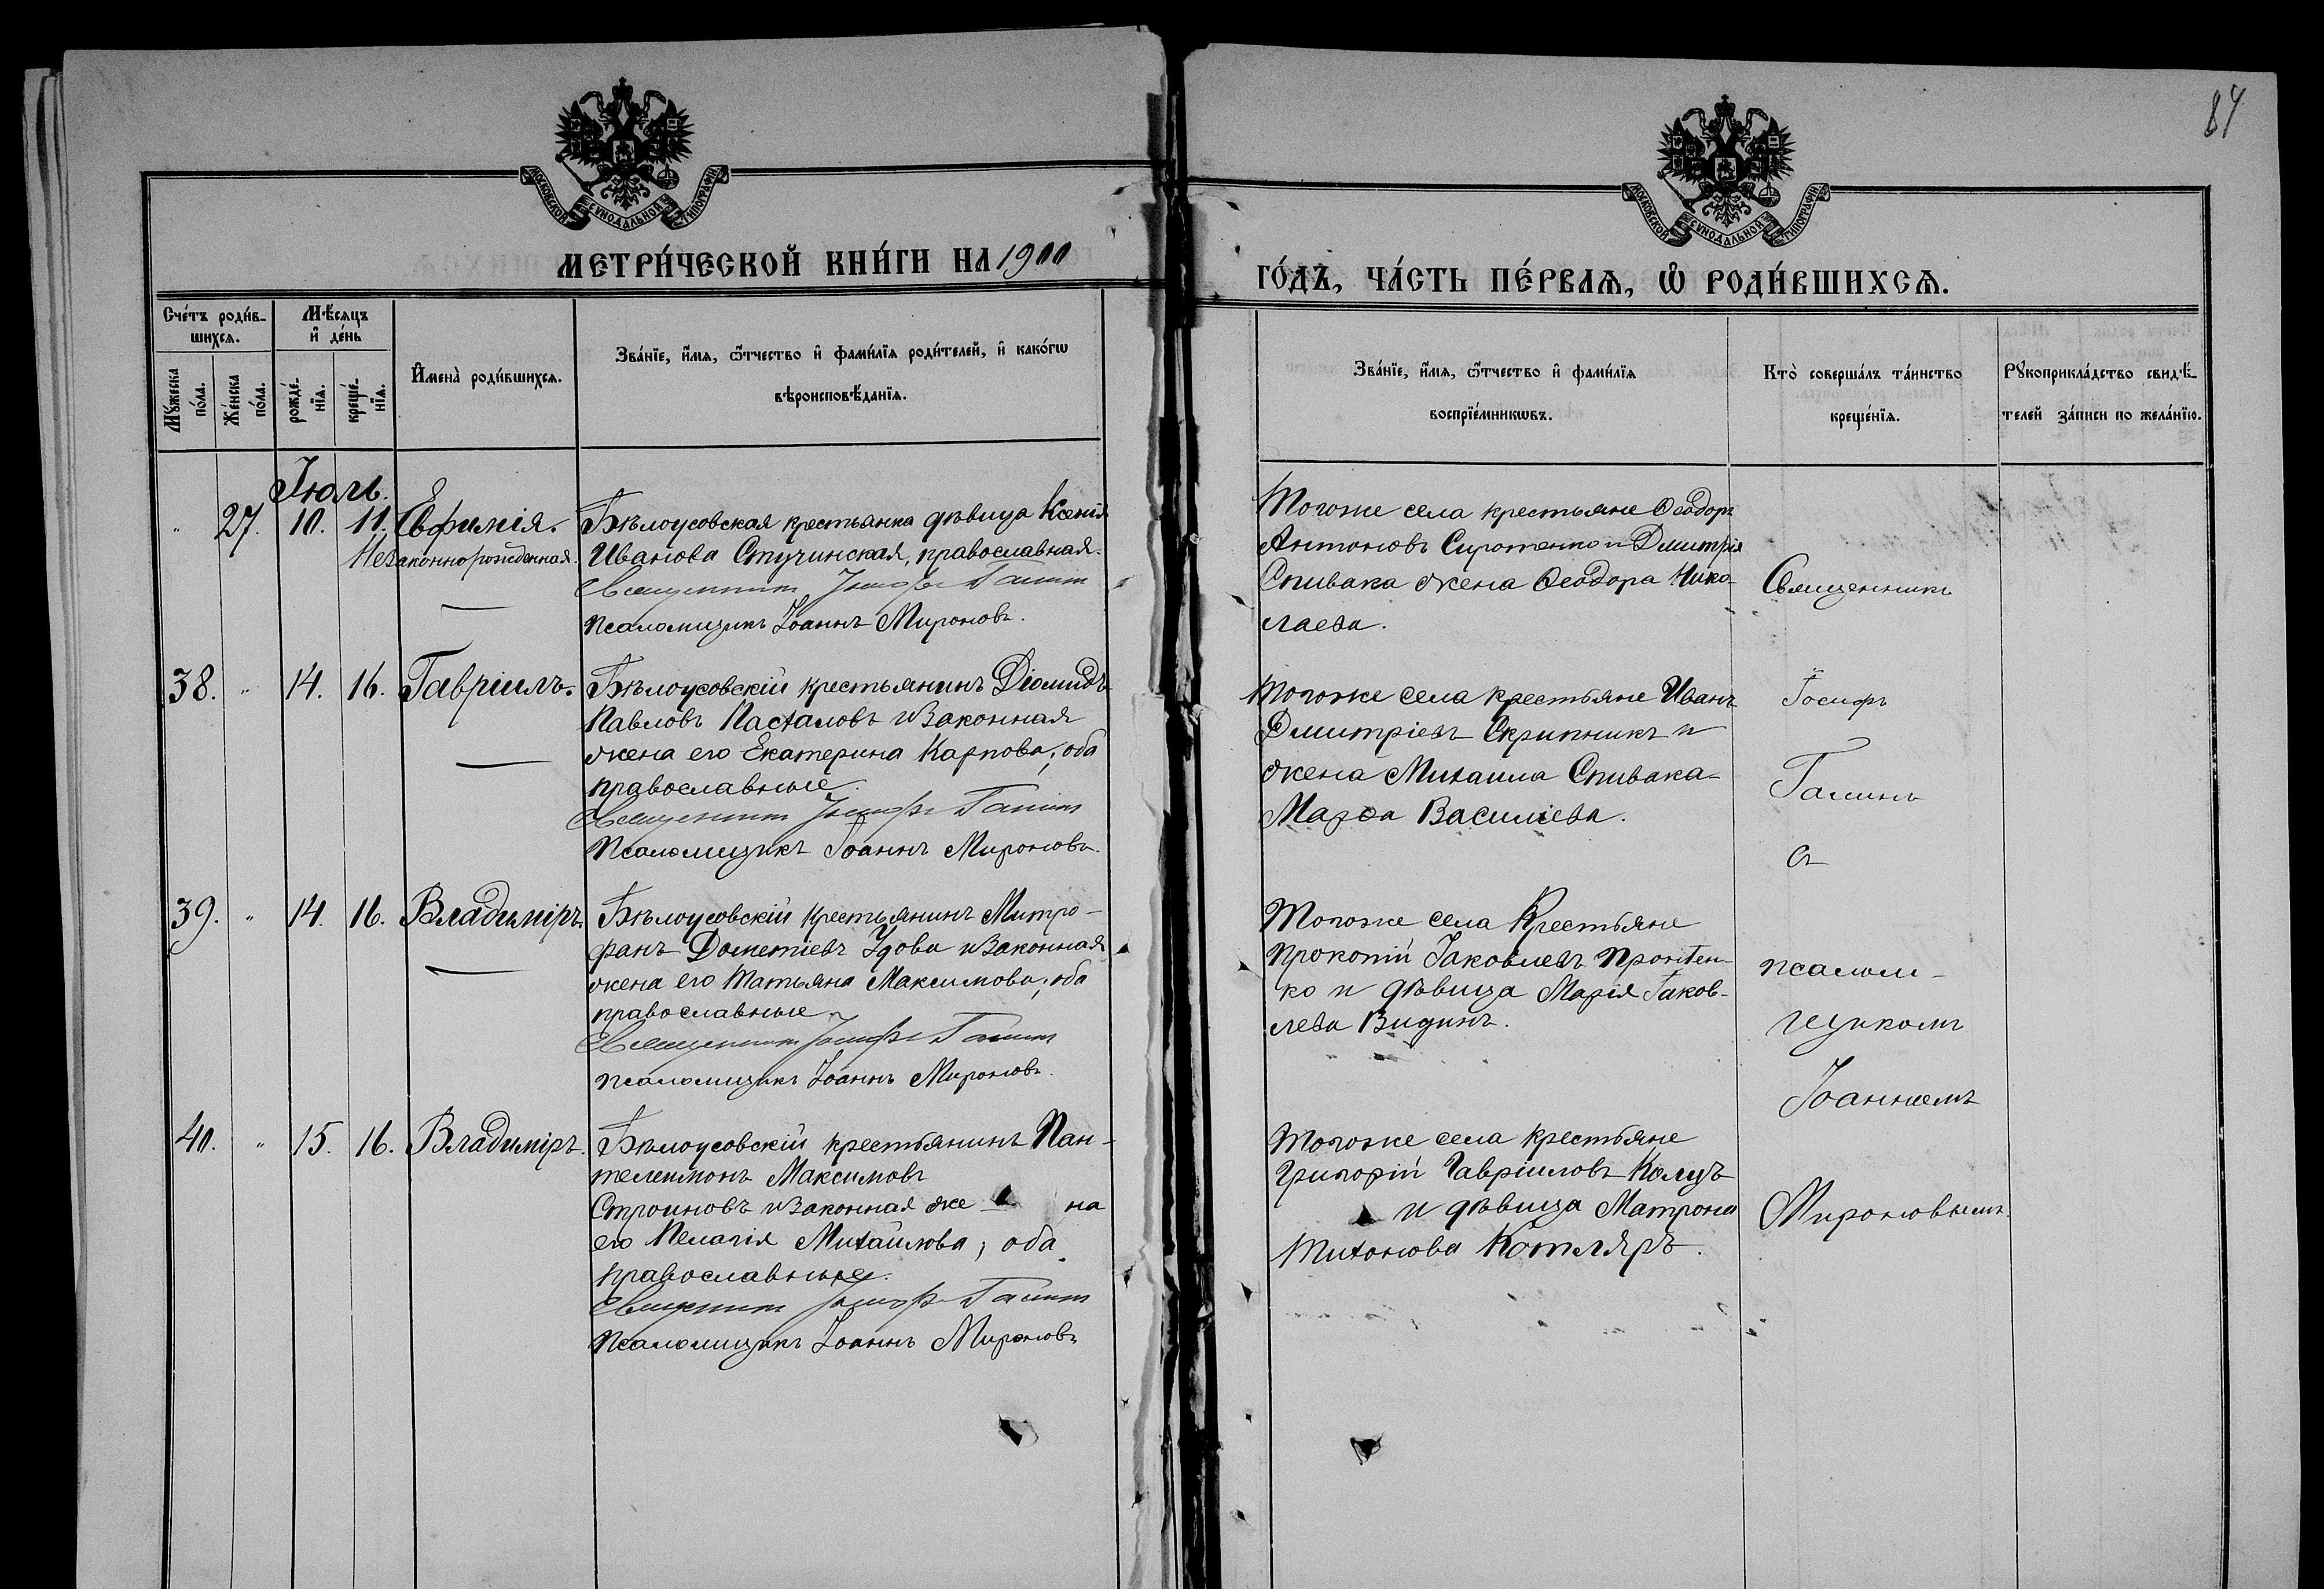 84
МОСКОВСКОЙ СѴНОДАЛЬНОЙ ТИПОГРАФІИ
МОСКОВСКОЙ СѴНОДАЛЬНОЙ ТИПОГРАФІИ
МЕТРИ́ЧЕСКОЙ КНИ́ГИ НА 1900
ГО́ДЪ, ЧА́СТЬ ПЕ́РВАѦ, Ѡ҆ РОДИ́ВШИХСѦ.
Сче́тъ роди́в-
шихсѧ.
Мѣ́сѧцъ
и҆ де́нь
Мꙋ́жеска
по́ла.
Же́нска
по́ла.
рожде́-
нїѧ.
креще́-
нїѧ.
И҆мена̀ роди́вшихсѧ.
Зва́нїе, и҆́мѧ, ѻ҆́тчество и҆ фами́лїѧ роди́телей, и҆ како́гѡ
вѣроисповѣ́данїѧ.
Зва́нїе, и҆́мѧ, ѻ҆́тчество и҆ фами́лїѧ
воспрїе́мникѡвъ.
Кто̀ соверша́лъ та́инство
креще́нїѧ.
Рꙋкоприкла́дство свидѣ́-
телей за́писи по жела́нїю.
Іюль.
" 27. 10. 11. Евфимія.
Незаконнорожденная.
Бѣлоусовская крестьянка дѣвица Ксенія
Иванова Стучинская, православная.
Священникъ Іосифъ Галинъ
Псаломщикъ Іоаннъ Мироновъ.
Тогоже села крестьяне Ѳеодоръ
Антоновъ Сиротенко и Димитрія
Спивака жена Ѳеодора Нико-
лаева.
Священникъ
38. " 14. 16. Гавріилъ.
Бѣлоусовскій крестьянинъ Діомидъ
Павловъ Пасталовъ и законная
жена его Екатерина Карпова; оба
православные.
Священникъ Іосифъ Галинъ
Псаломщикъ Іоаннъ Мироновъ.
Тогоже села крестьяне Иванъ
Димитріевъ Скрипникъ и
жена Михаила Спивака
Марѳа Василіева.
Іосифъ
Галинъ
съ
39. " 14. 16. Владиміръ.
Бѣлоусовскій крестьянинъ Митро-
фанъ Дометіевъ Удова и законная
жена его Татьяна Максимова; оба
православные.
Священникъ Іосифъ Галинъ
Псаломщикъ Іоаннъ Мироновъ.
Тогоже села Крестьяне
Прокопій Іаковлевъ
ко и дѣвица Марія Іаков-
лева Видинъ.
псалом-
щикомъ
Іоанномъ
40. " 15. 16. Владиміръ.
Бѣлоусовскій крестьянинъ Пан-
телеимонъ Максимовъ
Строиновъ и законная же на
его Пелагія Михайлова; оба
православные.
Священникъ Іосифъ Галинъ
Псаломщикъ Іоаннъ Мироновъ
Тогоже села крестьяне
Григорій Гавріиловъ Колцъ
и дѣвица Матрона
Тихонова Котляръ.
Мироновымъ.